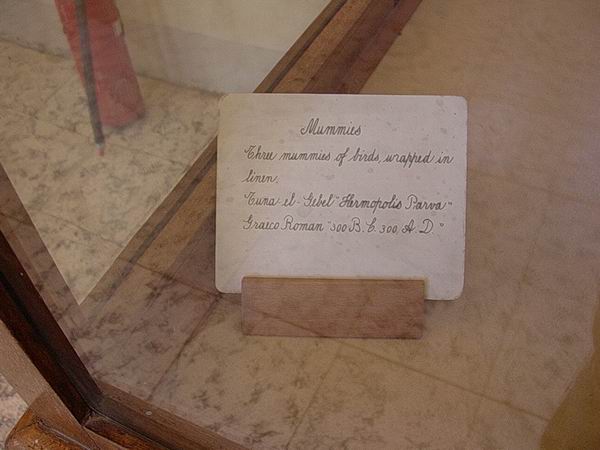 Mummies
Three mummies of birds, wrapped in
linen.
Tuna-el-Gebel "Hermopolis Parva"
Graeco Roman "300 B.C. 300, A.D"